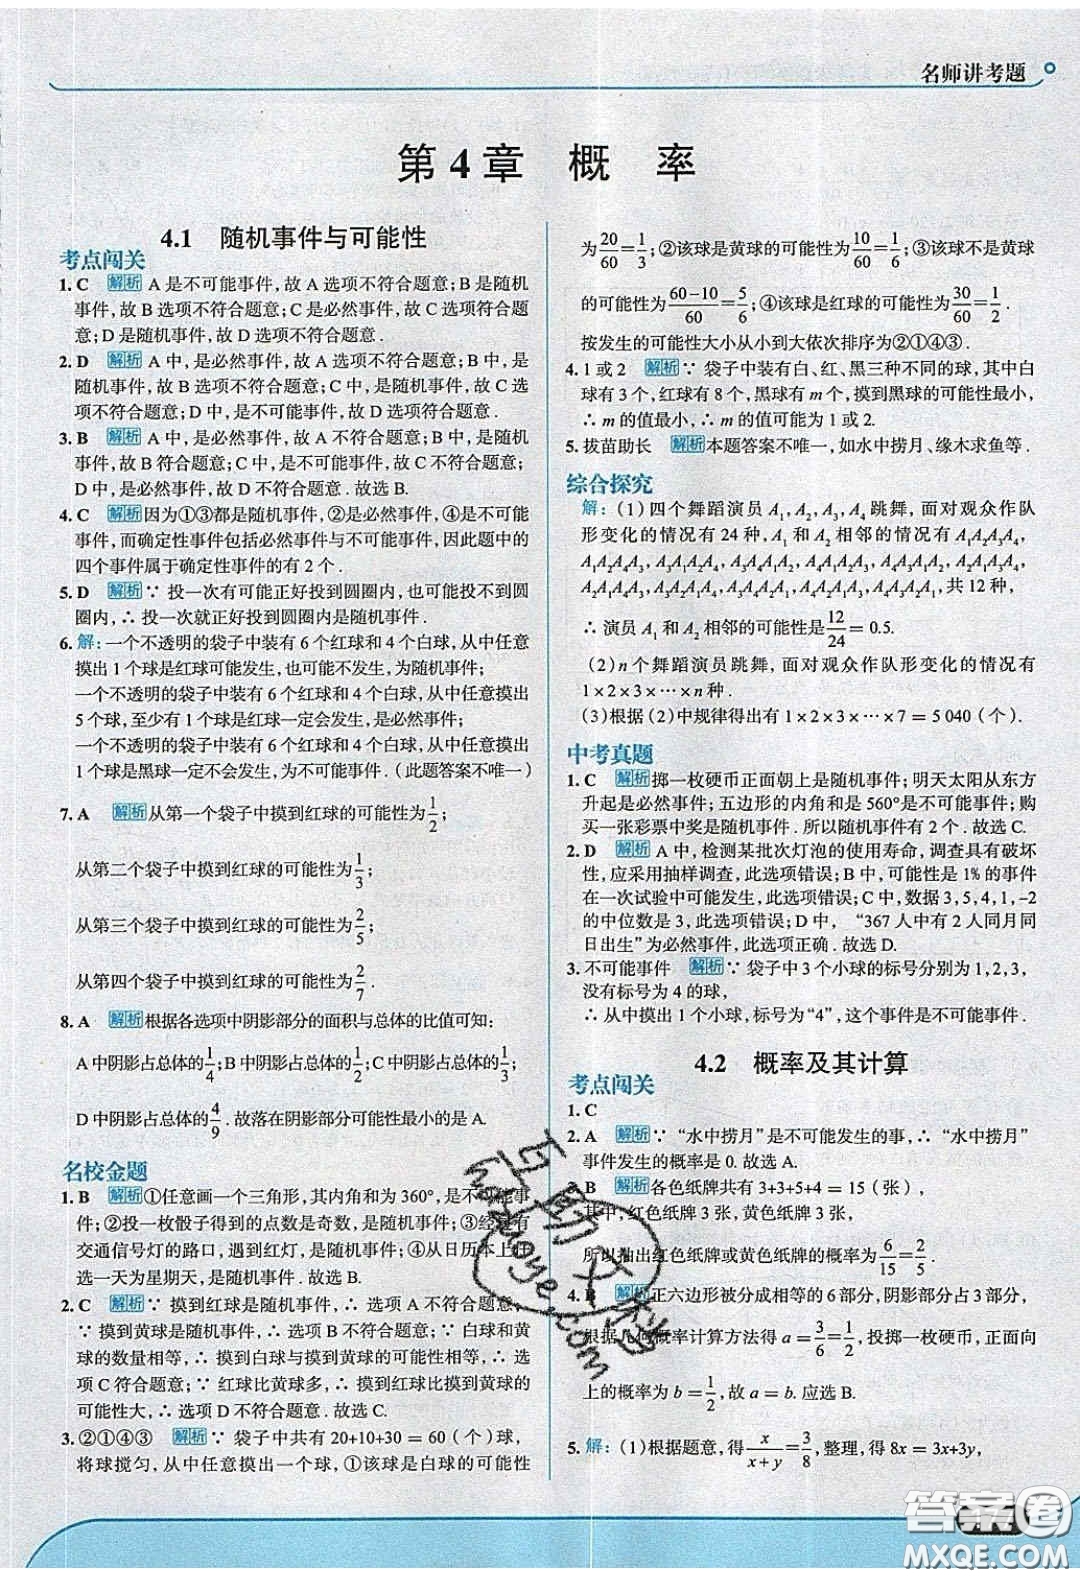 名师讲考题
第 4 章　概　率
4.1　随机事件与可能性
考点闯关
1. C　解析 A 是不可能事件，故 A 选项不符合题意；B 是随机
事件，故 B 选项不符合题意；C 是必然事件，故 C 选项符合题
意；D 是随机事件，故 D 选项不符合题意．
2. D　解析 A 中，是必然事件，故 A 选项不符合题意；B 中，是
随机事件，故 B 选项不符合题意；C 中，是随机事件，故 C 选项
不符合题意；D 中，是不可能事件，故 D 选项符合题意．
3. B　解析 A 中，是必然事件，故 A 不符合题意；B 中，是随机
事件，故 B 符合题意；C 中，是不可能事件，故 C 不符合题意；
D 中，是必然事件，故 D 不符合题意．故选 B.
4. C　解析 因为①③都是随机事件，②是必然事件，④是不可能
事件，而确定性事件包括必然事件与不可能事件，因此题中的
四个事件属于确定性事件的有 2 个．
5. D　解析 ∵ 投一次有可能正好投到圆圈内，也可能投不到圆
圈内，∴ 投一次就正好投到圆圈内是随机事件．
6. 解：一个不透明的袋子中装有 6 个红球和 4 个白球，从中任意
摸出 1 个球是红球可能发生，也可能不发生，为随机事件；
一个不透明的袋子中装有 6 个红球和 4 个白球，从中任意摸出
5 个球，至少有 1 个球是红球一定会发生，是必然事件；
一个不透明的袋子中装有 6 个红球和 4 个白球，从中任意摸出
1 个球是黑球一定不会发生，为不可能事件．（此题答案不唯一）
7. A　解析 从第一个袋子中摸到红球的可能性为 1/2；
从第二个袋子中摸到红球的可能性为 1/3；
从第三个袋子中摸到红球的可能性为 2/5；
从第四个袋子中摸到红球的可能性为 2/7．
8. A　解析 根据各选项中阴影部分的面积与总体的比值可知：
A 中阴影占总体的 1/4；B 中阴影占总体的 1/2；C 中阴影占总体的 1/3；
D 中阴影占总体的 4/9．故落在阴影部分可能性最小的是 A.
名校金题
1. B　解析 ①任意画一个三角形，其内角和为 360°，是不可能事
件；②投一枚骰子得到的点数是奇数，是随机事件；③经过有
交通信号灯的路口，遇到红灯，是随机事件；④从日历本上任
选一天为星期天，是随机事件．故选 B.
2. C　解析 ∵ 摸到红球是随机事件，∴ 选项 A 不符合题意；
∵ 摸到黄球是随机事件，∴ 选项 B 不符合题意；∵ 白球和黄
球的数量相等，∴ 摸到白球与摸到黄球的可能性相等，∴ 选
项 C 符合题意；∵ 红球比黄球多，∴ 摸到红球比摸到黄球的
可能性大，∴ 选项 D 不符合题意．故选 C.
3. ②①④③　解析 ∵ 袋子中共有 20+10+30 = 60（个）球，
将球搅匀，从中任意摸出一个球，①该球是白球的可能性
为 20/60 = 1/3；②该球是黄球的可能性为 10/60 = 1/6；③该球不是黄球
的可能性为 (60-10)/60 = 5/6；④该球是红球的可能性为 30/60 = 1/2．
按发生的可能性大小从小到大依次排序为②①④③．
4. 1 或 2　解析 ∵ 袋子中装有白、红、黑三种不同的球，其中白
球有 3 个，红球有 8 个，黑球有 m 个，摸到黑球的可能性最小，
∴ m 的值最小，∴ m 的值可能为 1 或 2.
5. 拔苗助长　解析 本题答案不唯一，如水中捞月、缘木求鱼等．
综合探究
解：（1）四个舞蹈演员 A₁, A₂, A₃, A₄ 跳舞，面对观众作队
形变化的情况有 24 种，A₁ 和 A₂ 相邻的情况有 A₁A₂A₃A₄,
共 12 种，
∴ 演员 A₁ 和 A₂ 相邻的可能性是 12/24 = 0.5.
（2）n 个舞蹈演员跳舞，面对观众作队形变化的情况有
1×2×3×⋯×n 种．
（3）根据（2）中规律得出有 1×2×3×⋯×7 = 5 040（个）.
中考真题
1. C　解析 掷一枚硬币正面朝上是随机事件；明天太阳从东方
升起是必然事件；五边形的内角和是 560°是不可能事件；购
买一张彩票中奖是随机事件．所以随机事件有 2 个．故选 C.
2. D　解析 A 中，检测某批次灯泡的使用寿命，调查具有破坏
性，应采用抽样调查，此选项错误；B 中，可能性是 1% 的事件
在一次试验中可能发生，此选项错误；C 中，数据 3,5,4,1,-2
的中位数是 3，此选项错误；D 中，“367 人中有 2 人同月同
日出生”为必然事件，此选项正确．故选 D.
3. 不可能事件　解析 ∵ 袋子中 3 个小球的标号分别为 1,2,3，
没有标号为 4 的球，
∴ 从中摸出 1 个小球，标号为“4”，这个事件是不可能事件．
4.2　概率及其计算
考点闯关
1. C
2. A　解析 ∵ “水中捞月”是不可能发生的事，∴ “水中捞月”
事件发生的概率是 0. 故选 A.
B　解析 各色纸牌共有 3+3+5+4 = 15（张），
其中，红色纸牌 3 张，黄色纸牌 3 张，
所以抽出红色纸牌或黄色纸牌的概率为 6/15 = 2/5．
4. B　解析 正六边形被分成相等的 6 部分，阴影部分占 3 部分，
根据几何概率计算方法得 a = 3/6 = 1/2，投掷一枚硬币，正面向
上的概率为 b = 1/2，故 a = b. 应选 B.
5. 解：（1）根据题意，得 x/(x+y) = 3/8，整理，得 8x = 3x+3y，
互助文档
huzhuoye.com
答案圈
MXQE.COM